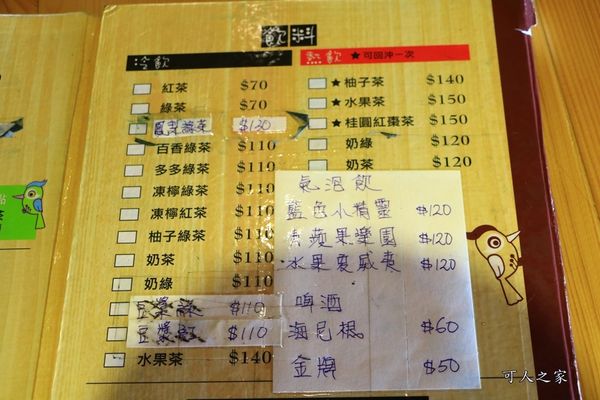 飲料
冷飲
紅茶 $70
綠茶 $70
$120
百香綠茶 $110
多多綠茶 $110
凍檸綠茶 $110
凍檸紅茶 $110
柚子綠茶 $110
奶茶 $110
奶綠 $110
豆漿綠 $110
豆漿紅 $110
水果茶 $140
熱飲 ★可回沖一次
★柚子茶 $140
★水果茶 $150
★桂圓紅棗茶 $150
奶綠 $120
奶茶 $120
氣泡飲
藍色小精靈 $120
青蘋果樂園 $120
水果夏威夷 $120
啤酒
海尼根 $60
金牌 $50
可人之家